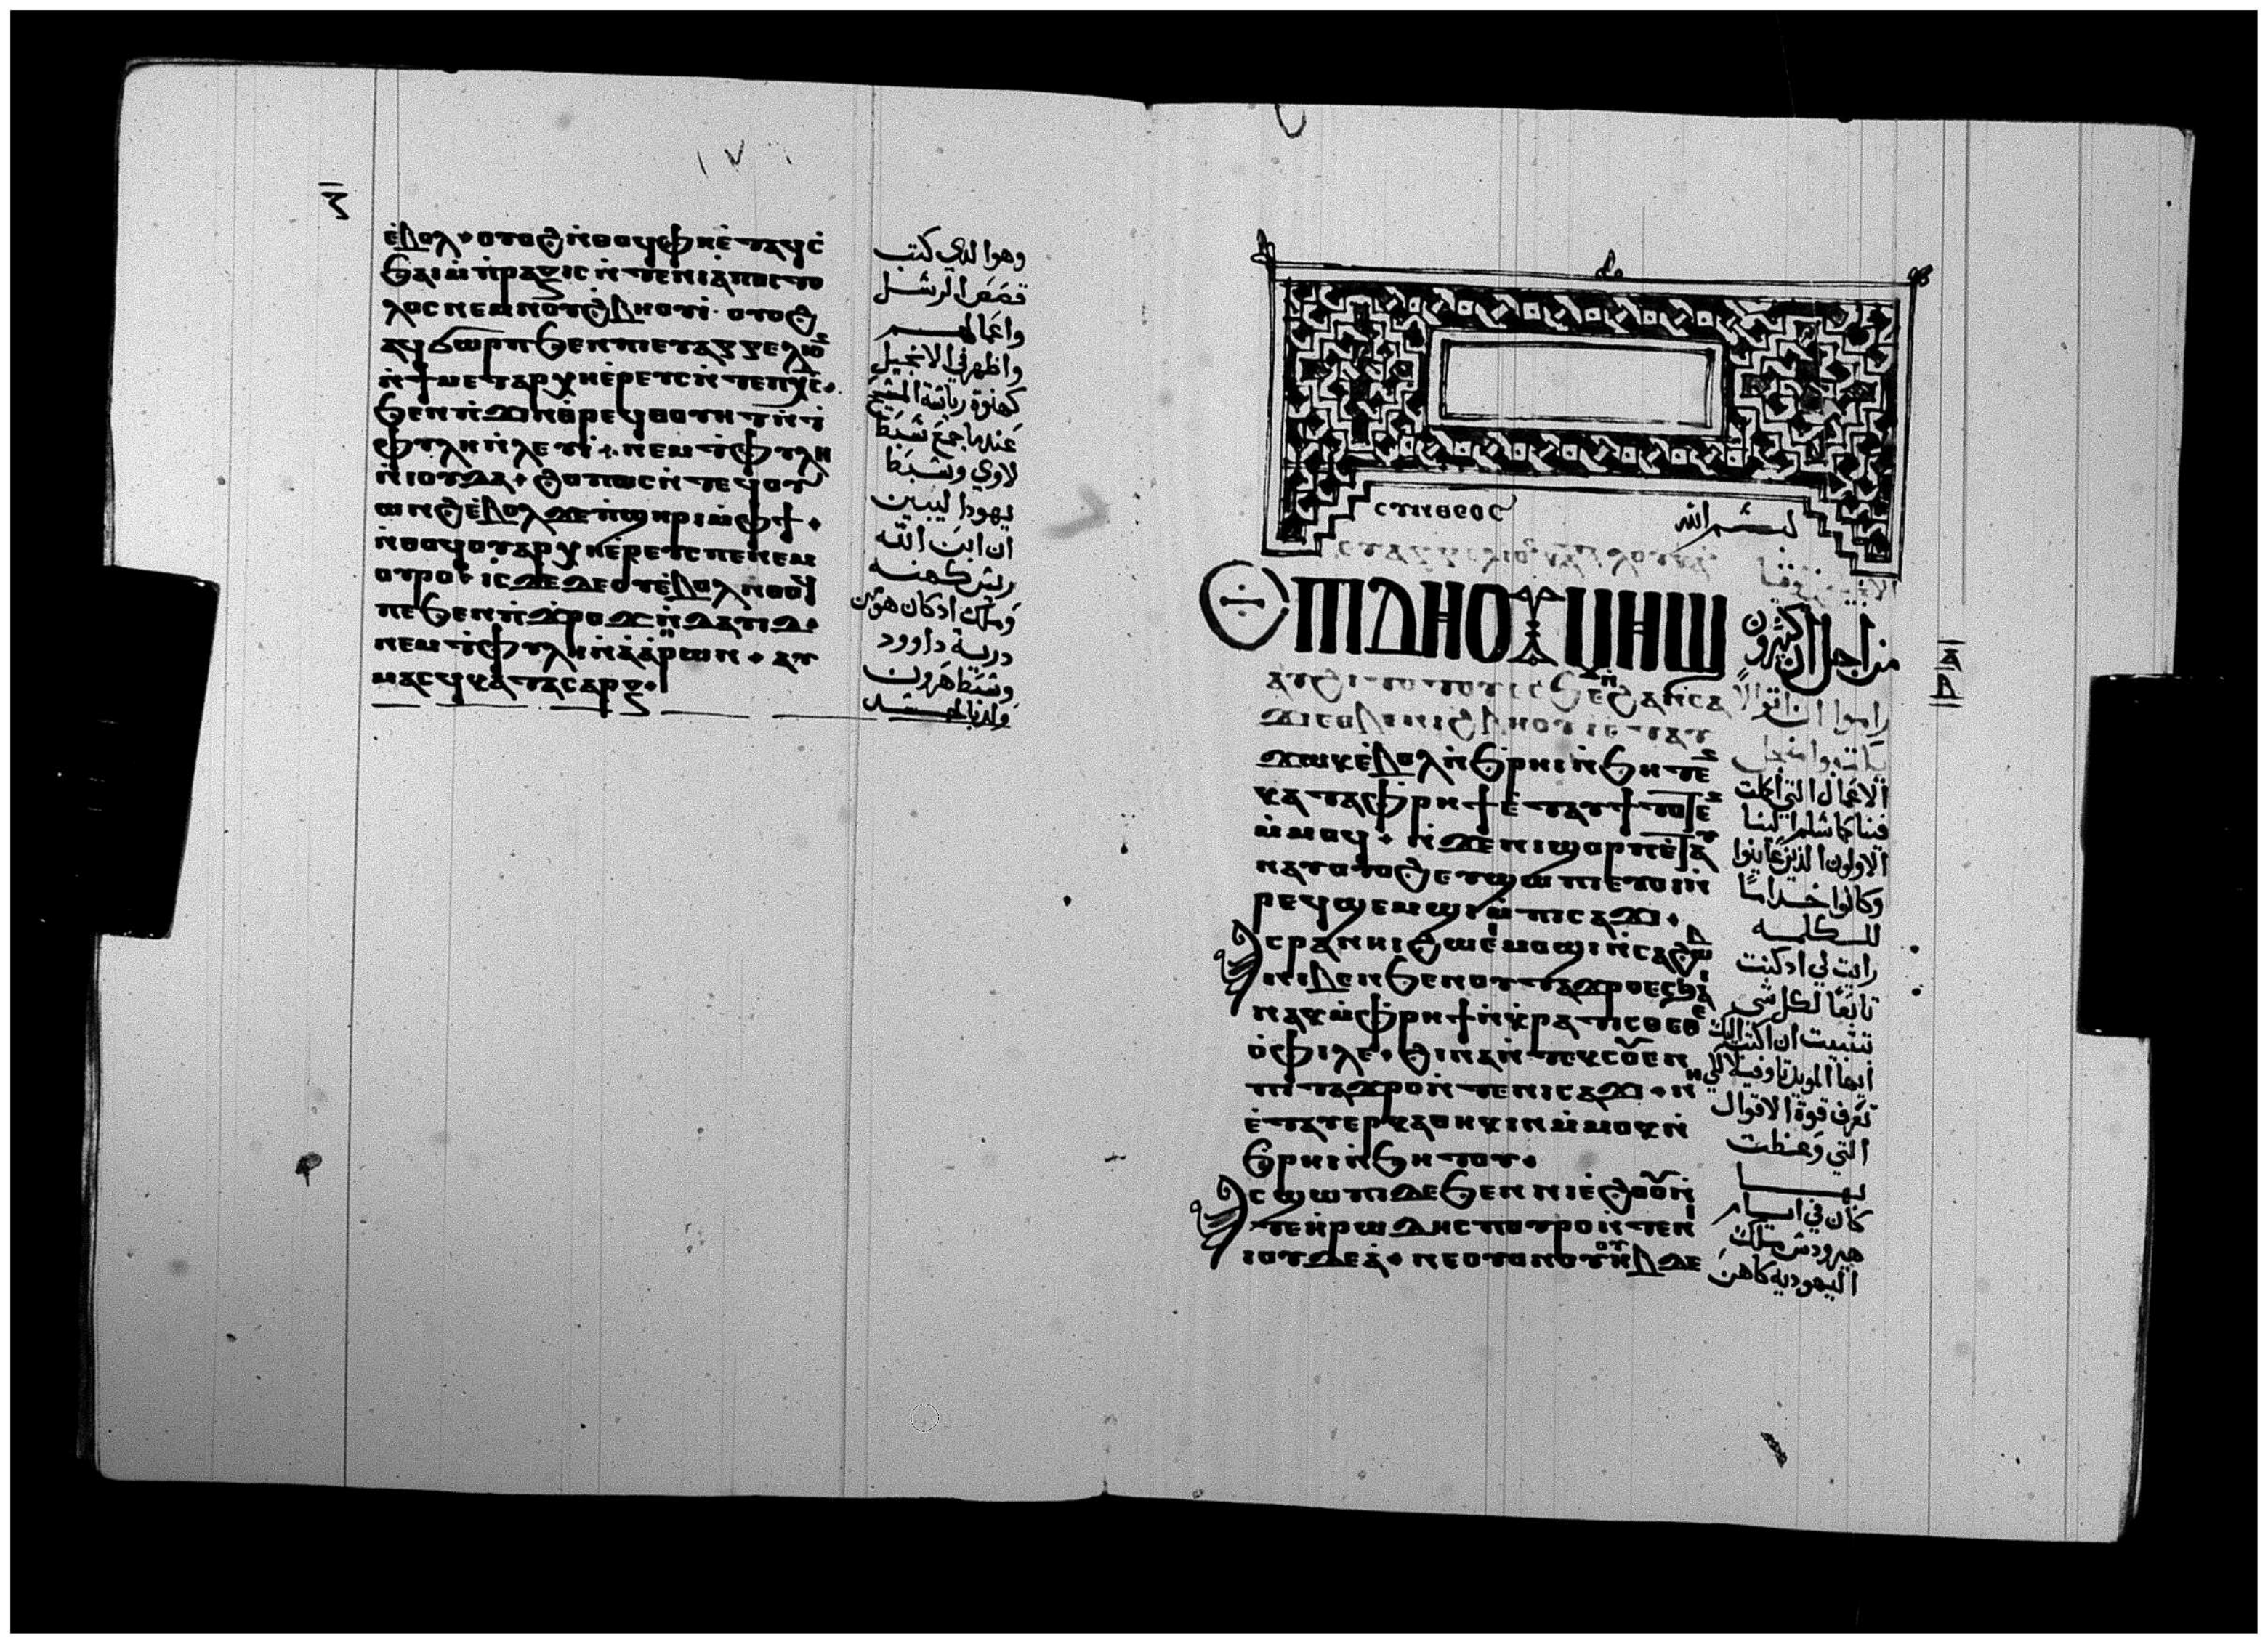 ⲉ̀ⲃⲟⲗ ⲟⲩⲟϩ ⲛ̀ⲑⲟϥ ⲫⲏⲉ̀ⲧⲁϥⲥ̀
ϧⲁⲓ ⲙ̀ⲡⲣⲁⲝⲓⲥ ⲛ̀ⲧⲉ ⲛⲓⲁⲡⲟⲥⲧⲟ
ⲗⲟⲥ ⲛⲉⲙ ⲛⲟⲩϩⲃⲏⲟⲩⲓ̀ ⲟⲩⲟϩ
ⲁϥϭⲱⲣⲡ ϧⲉⲛ ⲡⲓⲉⲩⲁⲅⲅⲉⲗⲓⲟⲛ
ⲛ̀ϯⲙⲉⲧⲁⲣⲭⲏⲉ̀ⲣⲉⲩⲥ ⲛ̀ⲧⲉ ⲡⲭ̅ⲥ̅
ϧⲉⲛ ⲡ̀ϫⲓⲛⲑⲣⲉϥⲑⲟⲩⲏⲧ ⲛ̀ϯ
ⲫⲩⲗⲏ ⲛ̀ⲗⲉⲩⲓ̀ ⲛⲉⲙ ϯⲫⲩⲗⲏ
ⲛ̀ⲓⲟⲩⲇⲁ ϩⲟⲡⲱⲥ ⲛ̀ⲧⲉϥⲟⲩ
ⲱⲛϩ ⲉ̀ⲃⲟⲗ ϫⲉ ⲡ̀ϣⲏⲣⲓ ⲙ̀ⲫϯ
ⲛ̀ⲑⲟϥ ⲟⲩⲁⲣⲭⲏⲉ̀ⲣⲉⲩⲥ ⲡⲉ ⲛⲉⲙ
ⲟⲩⲣⲟ ⲓⲥϫⲉ ϫⲉ ⲟⲩⲉ̀ⲃⲟⲗ ⲛ̀ⲑⲟϥ
ⲡⲉ ϧⲉⲛ ⲡ̀ϫⲣⲟϫ ⲛ̀ⲇⲁⲩⲓⲇ
ⲛⲉⲙ ϯⲫⲩⲗⲏ ⲛ̀ⲁ̀ⲁ̀ⲣⲱⲛ ⲁⲩ
ⲙⲁⲥϥ ⲕⲁⲧⲁ ⲥⲁⲣⲝ
وهوا لدي كتب
قصص الرسل
واعمالهم
واظهر في الانجيل
كهنوة رياسة المسيح
عندما جمع سبط
لاوي وسبط
يهودا ليبين
ان ابن الله
ريس كهنه
وملك ادكان هو من
درية داوود
وسبط هرون
ولد بالجسد
ⲥⲩⲛⲑⲉⲟⲥ
بسم الله
ⲉⲡⲓⲇⲏ ⲟⲩⲙⲏϣ
ⲁⲩϩⲓⲧⲟⲧⲟⲩ ⲉ̀ⲥϧⲉ ϩⲁⲛⲥⲁ
ϫⲓ ⲉⲑⲃⲉ ⲛⲓϩⲃⲏⲟⲩⲓ ⲉⲧⲁⲩ
ϫⲱⲕ ⲉ̀ⲃⲟⲗ ⲛ̀ϧⲣⲏⲓ ⲛ̀ϧⲏⲧⲉⲛ
ⲕⲁⲧⲁ ⲫⲣⲏϯ ⲉ̀ⲧⲁⲩϯ ⲧⲟⲧⲉⲛ
ⲙ̀ⲙⲟϥ ⲛ̀ϫⲉ ⲛⲓϣⲟⲣⲡ ⲉ̀ⲧⲁⲩ
ⲛⲁⲩ ⲟⲩⲟϩ ⲉⲩϣⲱⲡⲓ ⲉⲩⲟⲓ ⲛ̀
ⲣⲉϥϣⲉⲙϣⲓ ⲙ̀ⲡⲓⲥⲁϫⲓ
ⲁⲥⲣⲁⲛⲏⲓ ϩⲱ ⲉ̀ⲙⲟϣⲓ ⲛ̀ⲥⲁ ϩⲱⲃ
ⲛⲓⲃⲉⲛ ϧⲉⲛ ⲟⲩⲧⲁϫⲣⲟ ⲉ̀ⲥϧⲁⲓ
ⲛⲁⲕ ⲙ̀ⲫⲣⲏϯ ⲛ̀ⲕⲣⲁⲧⲓⲥⲑⲉ ⲑⲉ
ⲟ̀ⲫⲓⲗⲉ ϩⲓⲛⲁ ⲛ̀ⲧⲉⲕⲥⲟⲩⲉⲛ
ⲡⲓⲧⲁϫⲣⲟ ⲛ̀ⲧⲉ ⲛⲓⲥⲁϫⲓ ⲛⲏ
ⲉ̀ⲧⲁⲩⲉⲣⲕⲁⲑⲏⲕⲓⲛ ⲙ̀ⲙⲟⲕ ⲛ̀
ϧⲣⲏⲓ ⲛ̀ϧⲏⲧⲟⲩ
ⲁⲥϣⲱⲡⲓ ⲇⲉ ϧⲉⲛ ⲛⲓⲉ̀ϩⲟⲟⲩ ⲛ̀
ⲧⲉ ⲏ̀ⲣⲱⲇⲏⲥ ⲡⲟⲩⲣⲟ ⲛ̀ⲧⲉ ϯ
ⲓⲟⲩⲇⲉⲁ̀ ⲛⲉ ⲟⲩⲟⲛ ⲟⲩⲟⲩⲏⲃ ⲇⲉ
من اجل ان كثيرون
راموا
الاعمال التي اكملت
فينا كما سلم الينا
الاولون الذين عاينوا
وكانوا خداما
للكلمه
رايت لي ادكنت
تابعا لكل شي
تثبيت ان اكتب اليك
ايها العزيز تاوفيلا لكي
تعرف قوة الاقوال
التي وعظت
بها
كان في ايام
هيرودس ملك
اليهوديه كاهن